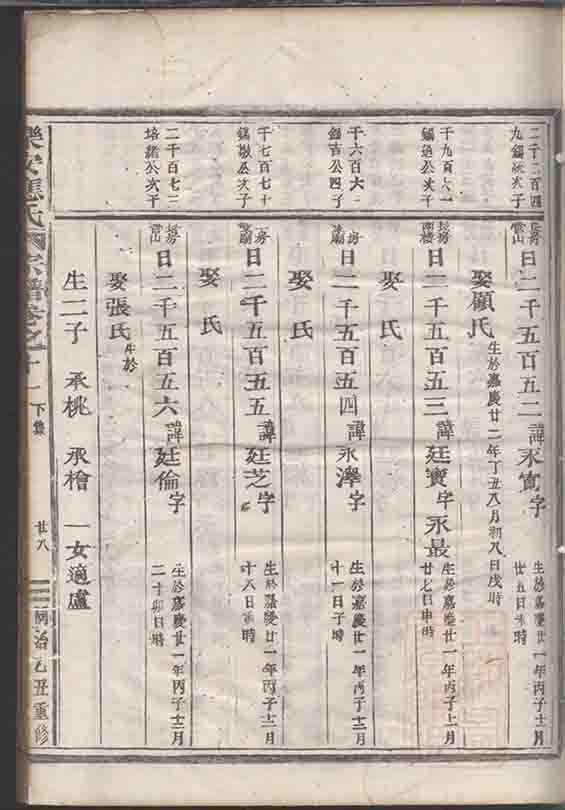 二千二百四
九錫公次子
房
日二千五百五二諱永實字
生於嘉慶廿一年丙子十二月
廿五日未時
娶顧氏
生於嘉慶廿二年丁丑八月初八日戌時
千九百六一
錫通公次子
長房
西樓
日二千五百五三諱廷實字永最
生於嘉慶廿一年丙子七月
廿七日申時
娶氏
千六百六二
錦吉公四子
房
日二千五百五四諱永澤字
生於嘉慶廿一年丙子十二月
十一日子時
娶氏
千七百七十
公次子
房
日二千五百五五諱廷芝字
生於嘉慶廿一年丙子十二月
十八日寅時
娶氏
二千百七三
培緒公次子
房
日二千五百五六諱廷倫字
生於嘉慶廿一年丙子十二月
二十卯日時
娶張氏
生於
生二子 承桃 承檜 一女適盧
樂安應氏宗譜卷之十一
下集
廿八
同治乙丑重修